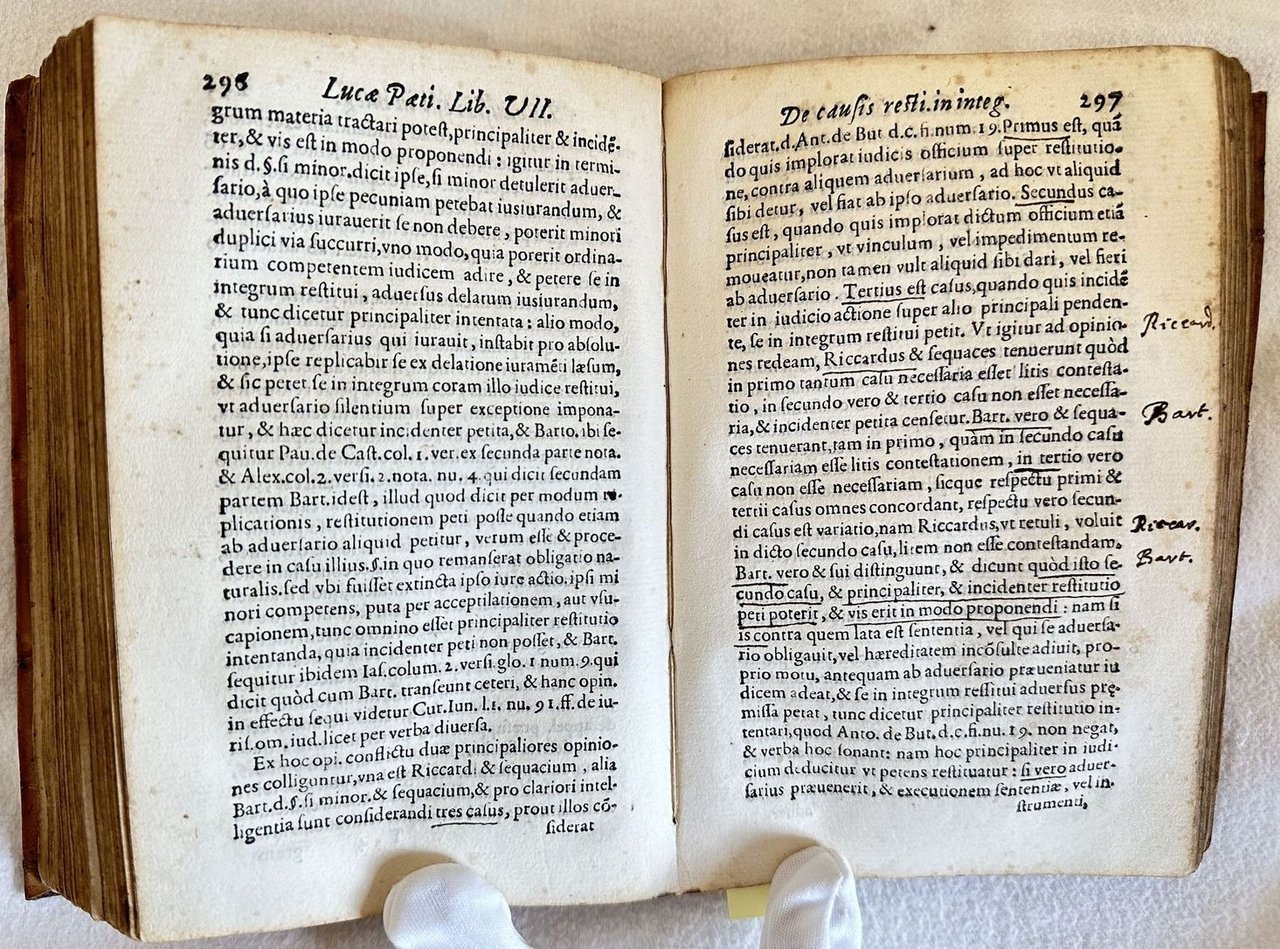 298 Lucæ Pæti. Lib. VII.
grum materia tractari potest,principaliter & incidē-
ter,& vis est in modo proponendi : igitur in termi-
nis d.§.si minor.dicit ipse,si minor detulerit aduer-
sario,à quo ipse pecuniam petebat iusiurandum, &
aduersarius iurauerit se non debere , poterit minori
duplici via succurri,vno modo,quia poterit ordina-
rium competentem iudicem adire , & petere se in
integrum restitui , aduersus delatum iusiurandum,
& tunc dicetur principaliter intentata : alio modo,
quia si aduersarius qui iurauit, instabit pro absolu-
tione,ipse replicabit se ex delatione iuramēti læsum,
& sic petet se in integrum coram illo iudice restitui,
vt aduersario silentium super exceptione impona-
tur , & hæc dicetur incidenter petita,& Barto. ibi se-
quitur Pau. de Cast.col. 1.ver.ex secunda parte nota.
& Alex.col.2.versi.2.nota. nu. 4.qui dicit secundam
partem Bart.idest , illud quod dicit per modum re-
plicationis , restitutionem peti posse quando etiam
ab aduersario aliquid petitur , verum esse & proce-
dere in casu illius.§.in quo remanserat obligatio na-
turalis.sed vbi fuisset extincta ipso iure actio.ipsi mi
nori competens, puta per acceptilationem , aut vsu-
capionem,tunc omnino esset principaliter restitutio
intentanda, quia incidenter peti non posset, & Bart.
sequitur ibidem Ias.colum. 2.versi.glo. 1 num.9.qui
dicit quòd cum Bart. transeunt ceteri, & hanc opin.
in effectu sequi videtur Cur.Iun. l.1. nu. 91.ff.de iu-
ris.om.iud.licet per verba diuersa.
Ex hoc opi. conflictu duæ principaliores opinio-
nes colliguntur,vna est Riccardi & sequacium , alia
Bart.d.§.si minor.& sequacium,& pro clariori intel-
ligentia sunt considerandi tres casus, prout illos cō-
siderat
De causis resti.in integ. 297
siderat.d.Ant.de But d.c.fi.num.19.Primus est, quā
do quis implorat iudicis officium super restitutio-
ne,contra aliquem aduersarium , ad hoc vt aliquid
sibi detur, vel fiat ab ipso aduersario. Secundus ca-
sus est , quando quis implorat dictum officium etiā
principaliter , vt vinculum , vel impedimentum re-
moueatur,non tamen vult aliquid sibi dari, vel fieri
ab aduersario . Tertius est casus,quando quis incidē
ter in iudicio actione super alio principali penden-
te, se in integrum restitui petit. Vt igitur ad opinio-
Riccard.
nes redeam, Riccardus & sequaces tenuerunt quòd
in primo tantum casu necessaria esset litis contesta-
tio , in secundo vero & tertio casu non esset necessa-
ria,& incidenter petita censetur. Bart. vero & sequa-
Bart.
ces tenuerant,tam in primo , quàm in secundo casu
necessariam esse litis contestationem , in tertio vero
casu non esse necessariam , sicque respectu primi &
tertii casus omnes concordant, respectu vero secun-
di casus est variatio,nam Riccardus,vt retuli , voluit
Riccar.
in dicto secundo casu,litem non esse contestandam.
Bart. vero & sui distinguunt, & dicunt quòd isto se-
Bart.
cundo casu, & principaliter, & incidenter restitutio
peti poterit , & vis erit in modo proponendi : nam si
is contra quem lata est sententia , vel qui se aduersa-
rio obligauit,vel hæreditatem incōsulte adiuit, pro-
prio motu, antequam ab aduersario præueniatur iu
dicem adeat,& se in integrum restitui aduersus prę-
missa petat , tunc dicetur principaliter restitutio in-
tentari,quod Anto. de But.d.c.fi.nu. 19. non negat,
& verba hoc sonant: nam hoc principaliter in iudi-
cium deducitur vt petens restituatur : si vero aduer-
sarius præuenerit , & executionem sententiæ, vel in-
strumenti,